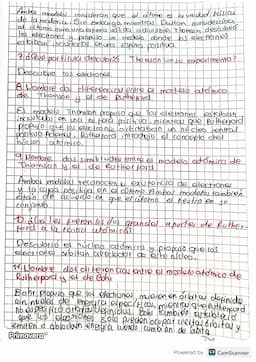 Ambos modelos consideran que el átomo es la unidad básica
de la materia. Sin embargo, mientras Dalton consideraba
al átomo como una esfera sólida indivisible Thomson descubrió
los electrones y propuso un modelo donde los electrones
estaban incrustados en una esfera positiva.
7. ¿Qué partícula descubrió Thomson en su experimento?
Descubrió los electrones.
8. Nombre dos diferencias entre el modelo atómico
de Thomson y el de Rutherford
El modelo Thomson propuso que los electrones estaban
incrustados en una esfera positiva, mientras que Rutherford
propuso que los electrones orbitaban un núcleo central
positivo. Además, Rutherford introdujo el concepto del
núcleo atómico.
9. Nombre dos similitudes entre el modelo atómico de
Thomson y el de Rutherford
Ambos modelos reconocen la existencia de electrones
y la carga positiva en el átomo. Ambos modelos también
están de acuerdo en que el átomo es neutro en su
conjunto.
10. ¿Cuáles fueron los dos grandes aportes de Ruther-
ford a la teoría atómica?
Descubrió el núcleo atómico y propuso que los
electrones orbitan alrededor de este núcleo.
11. Nombre dos diferencias entre el modelo atómico de
Rutherford y el de Bohr
Bohr propuso que los electrones se mueven en órbitas definidas
con niveles de energía específicos, mientras que Rutherford
no especificó órbitas definidas. Bohr también estableció
que los electrones solo pueden ocupar ciertas órbitas y
emiten o absorben energía cuando cambian de órbita.
Primavera
Powered by CS CamScanner